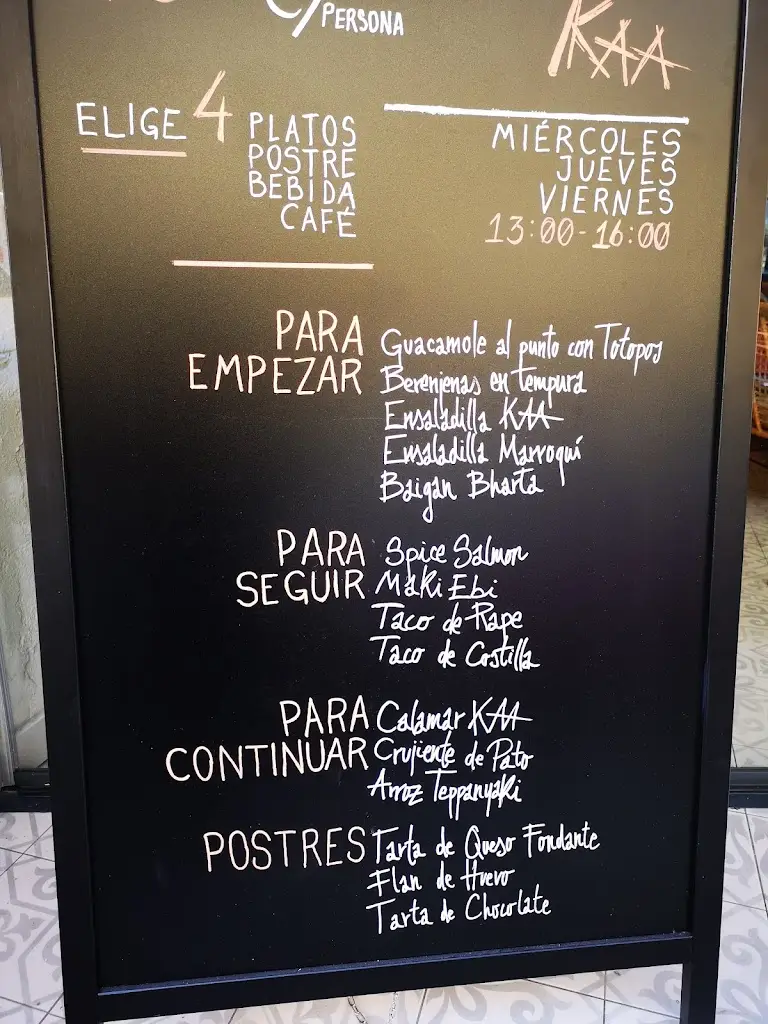 €/PERSONA
KAA
ELIGE 4 PLATOS
POSTRE
BEBIDA
CAFÉ
MIÉRCOLES
JUEVES
VIERNES
13:00-16:00
PARA EMPEZAR
Guacamole al punto con Totopos
Berenjenas en tempura
Ensaladilla KAA
Ensaladilla Marroquí
Baigan Bharta
PARA SEGUIR
Spice Salmon
Maki Ebi
Taco de Rape
Taco de Costilla
PARA CONTINUAR
Calamar KAA
Crujiente de Pato
Arroz Teppanyaki
POSTRES
Tarta de Queso Fondante
Flan de Huevo
Tarta de Chocolate